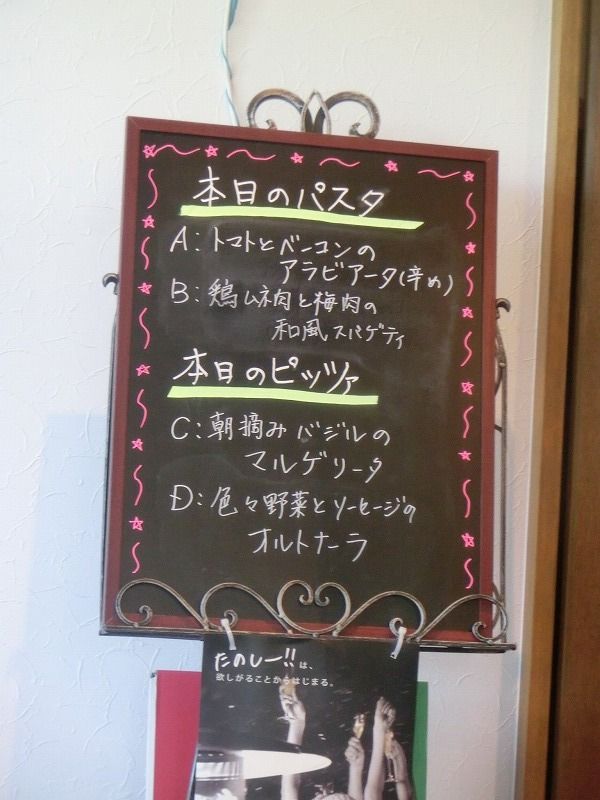 本日のパスタ
A:トマトとベーコンの
アラビアータ(辛め)
B:鶏ムネ肉と梅肉の
和風スパゲティ
本日のピッツァ
C:朝摘みバジルの
マルゲリータ
D:色々野菜とソーセージの
オルトナーラ
たのしー!!は、
欲しがることからはじまる。